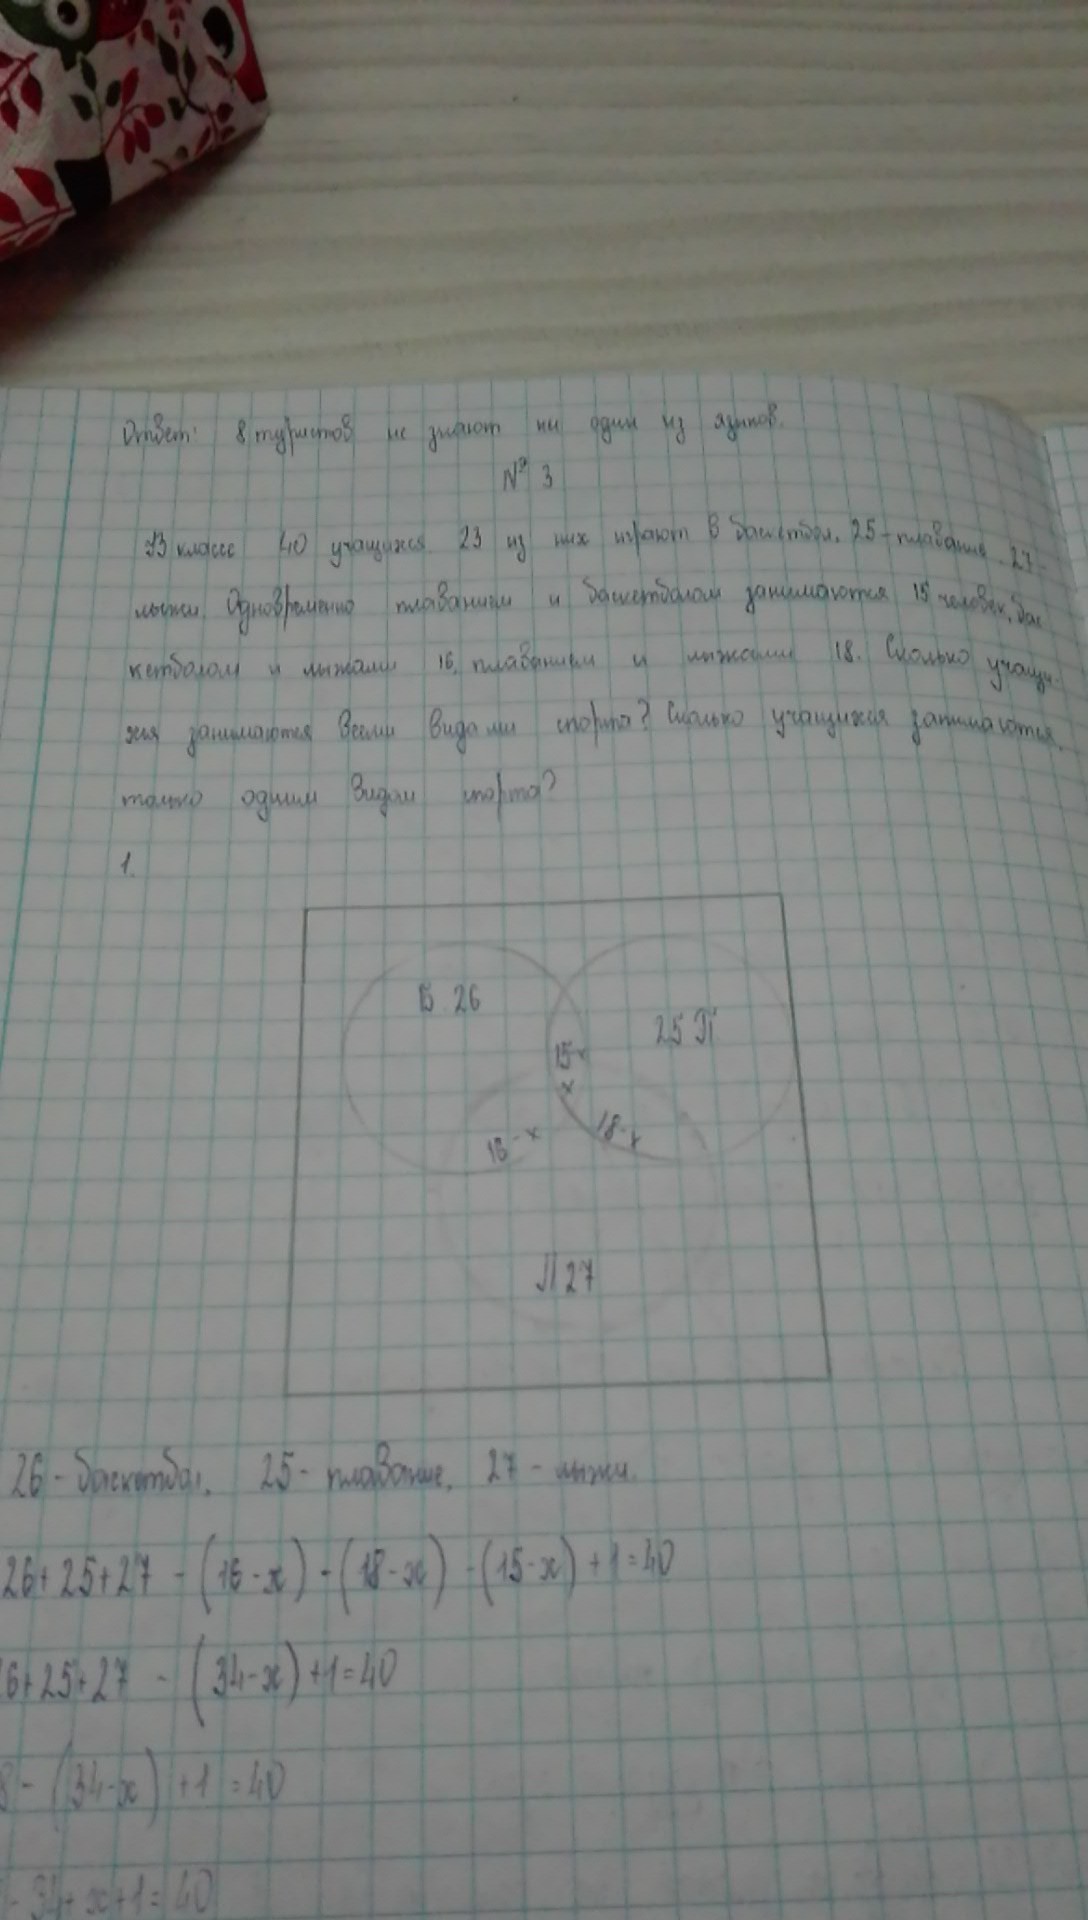 Ответ: 8 туристов не знают ни один из языков.
№ 3
В классе 40 учащихся 23 из них играют в баскетбол. 25 - плавание. 27-
лыжи. Одновременно плаванием и баскетболом занимаются 15 человек, бас
кетболом и лыжами 16, плаванием и лыжами 18. Сколько учащи-
хся занимаются всеми видами спорта? Сколько учащихся занимаются
только одним видом спорта?
1.
Б 26
25 П
15-x
x
16-x
18-x
Л 27
26 - баскетбол, 25 - плавание, 27 - лыжи.
26+25+27 - (16-x) - (18-x) - (15-x) +1=40
6+25+27 - (34-x) +1=40
8 - (34-x) +1 =40
- 34+x+1=40